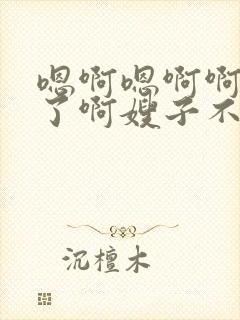 嗯啊嗯啊啊
了啊嫂子不
沉檀木